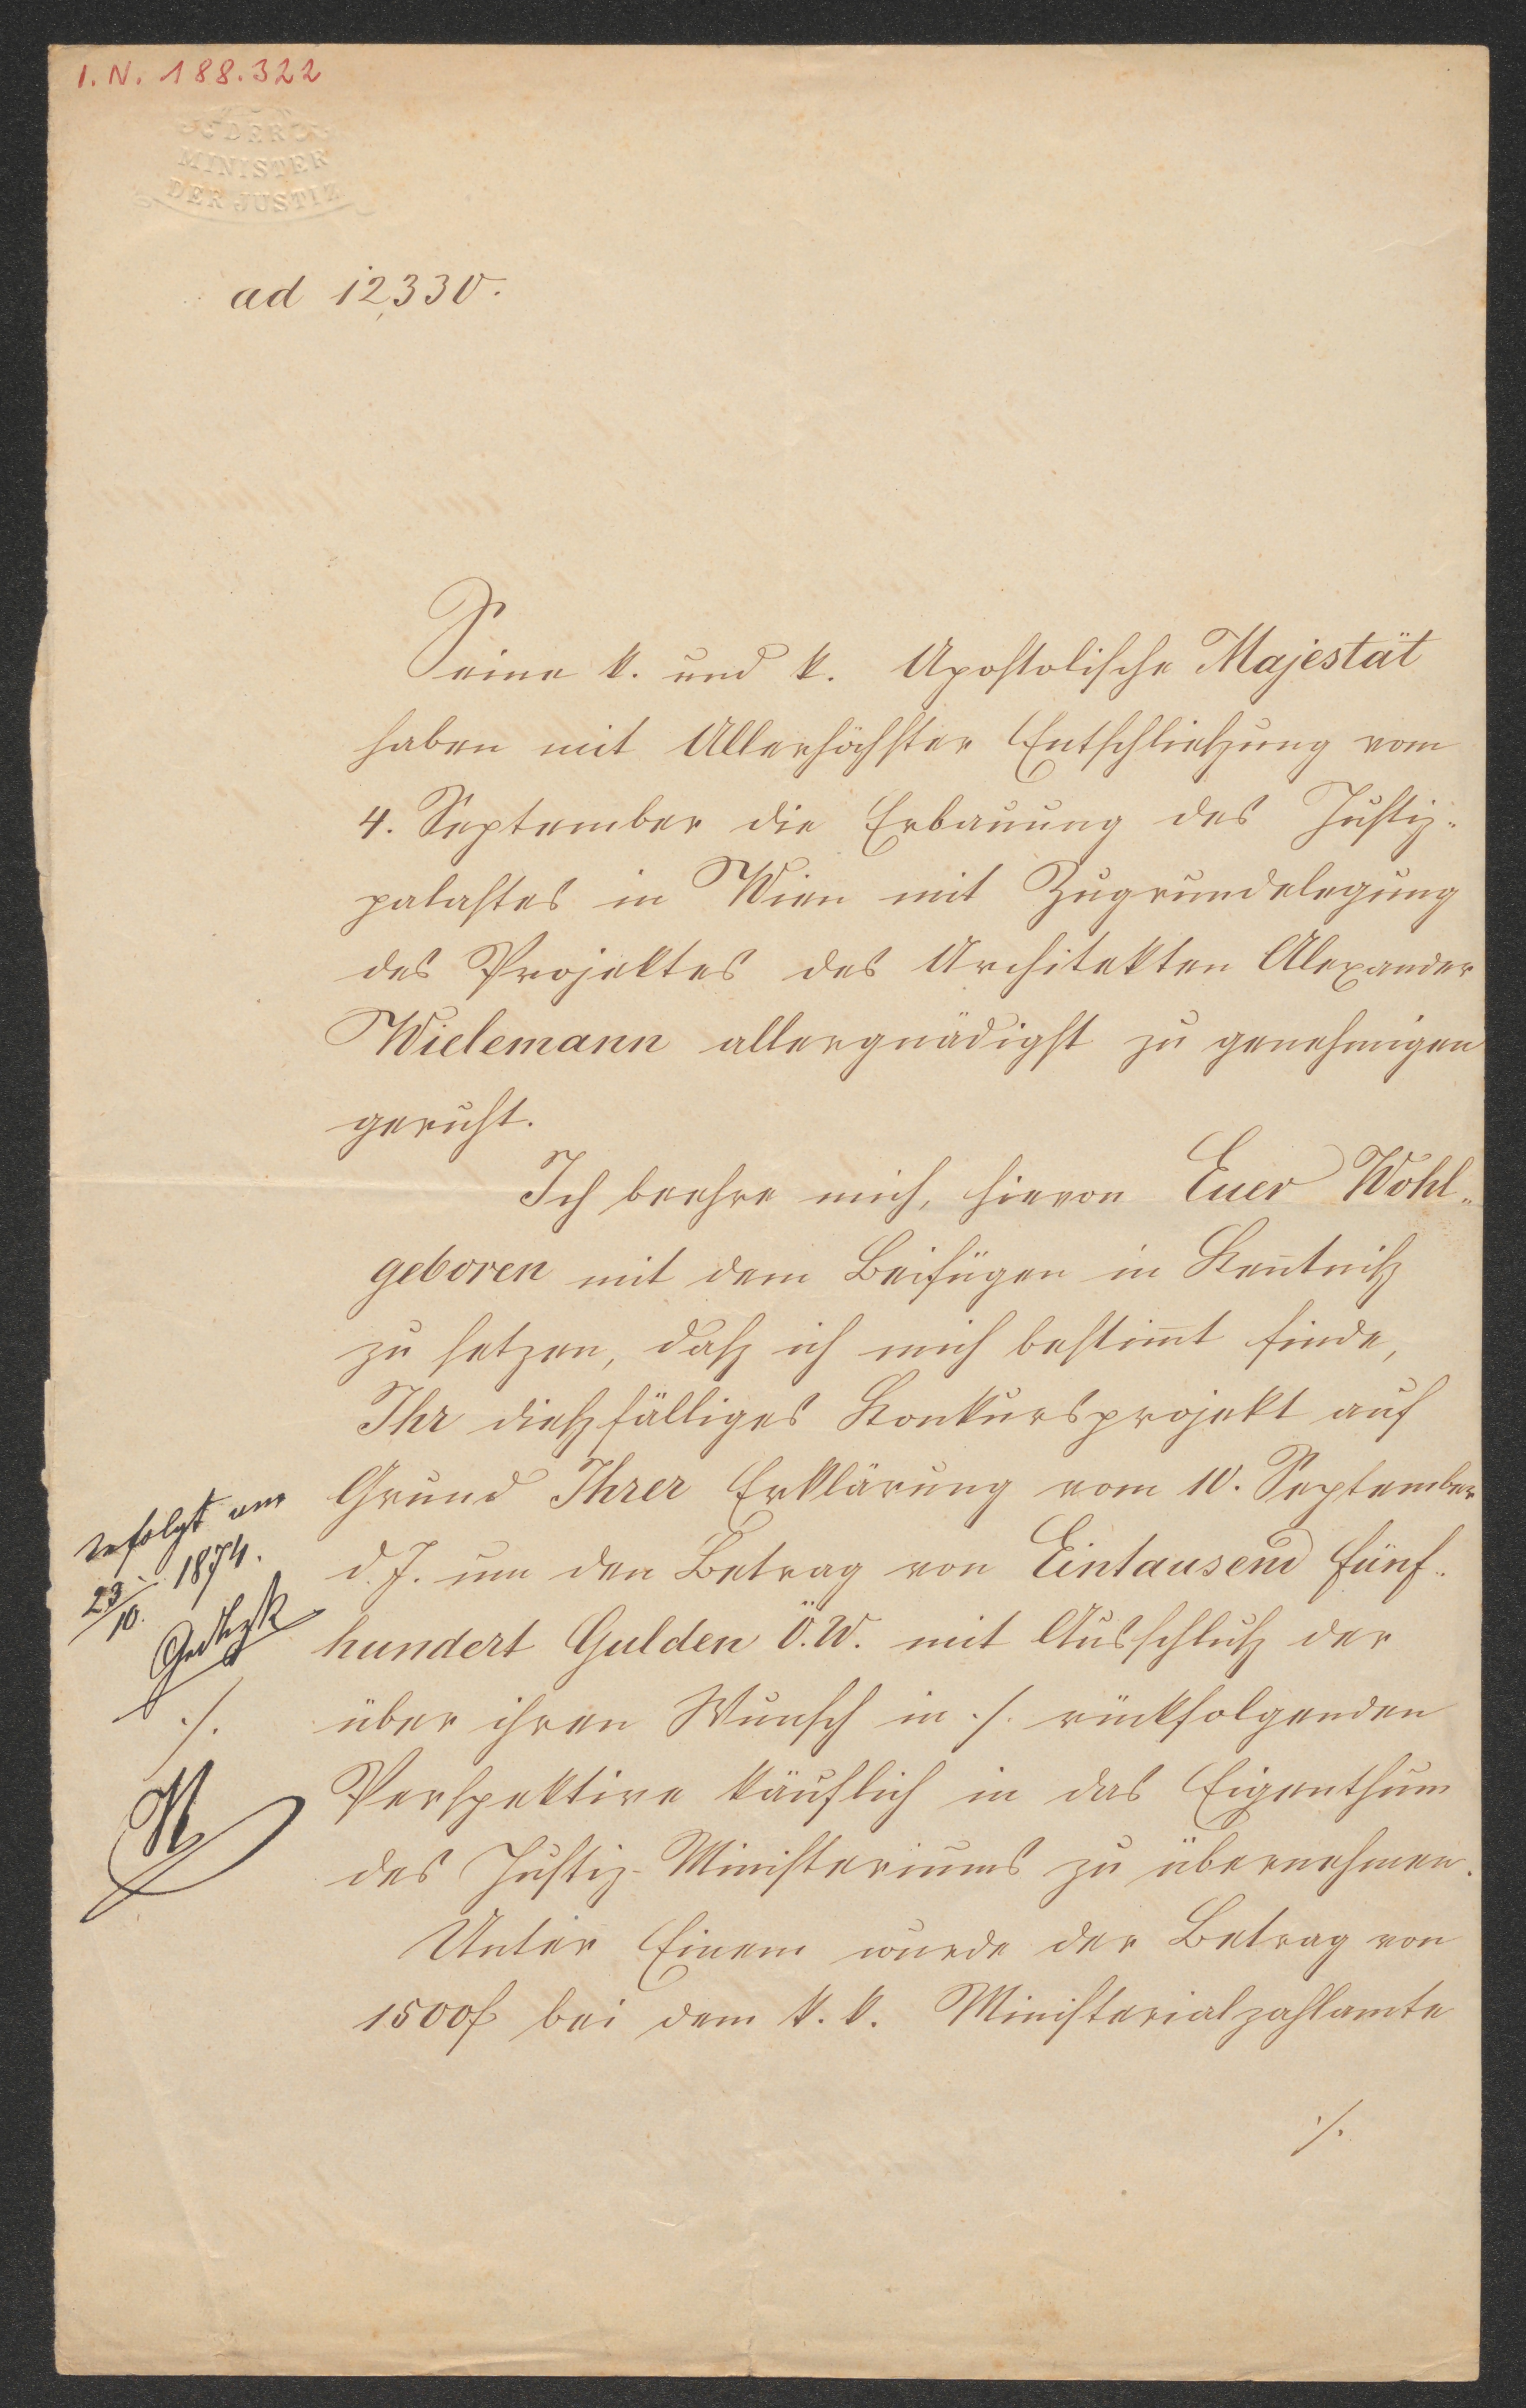 I.N. 188.322
DER
MINISTER
DER JUSTIZ
ad 12,330.
Seine k. und k. Apostolische Majestät
haben mit Allerhöchster Entschließung vom
4. September die Erbauung des Justiz-
palastes in Wien mit Zugrundelegung
des Projektes des Architekten Alexander
Wielemann allergnädigst zu genehmigen
geruht.
Ich beehre mich, hievon Euer Wohl-
geboren mit dem Beifügen in Keñtniß
zu setzen, daß ich mich bestim̄t finde,
Ihr dießfälliges Konkursprojekt auf
Grund Ihrer Erklärung vom 10. September
d. J. um den Betrag von Eintausend fünf-
hundert Gulden ö.W. mit Ausschluß der
über ihren Wunsch in ./. rückfolgenden
Perspektive käuflich in das Eigenthum
des Justiz-Ministeriums zu übernehmen.
Unter Einem wurde der Betrag von
1500f bei dem k. k. Ministerialzahlamte
./.
erfolgt am
23/10. 1874.
./.